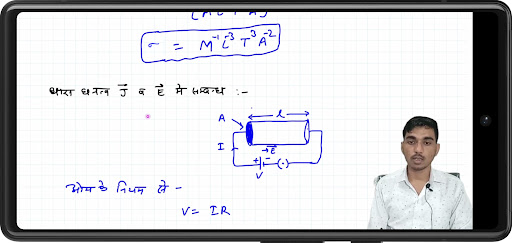 σ = M⁻¹ L⁻³ T³ A⁻²
धारा घनत्व J⃗ व E⃗ में सम्बन्ध :-
A
l
I
→E⃗
+ -
V
ओम के नियम से -
V = IR